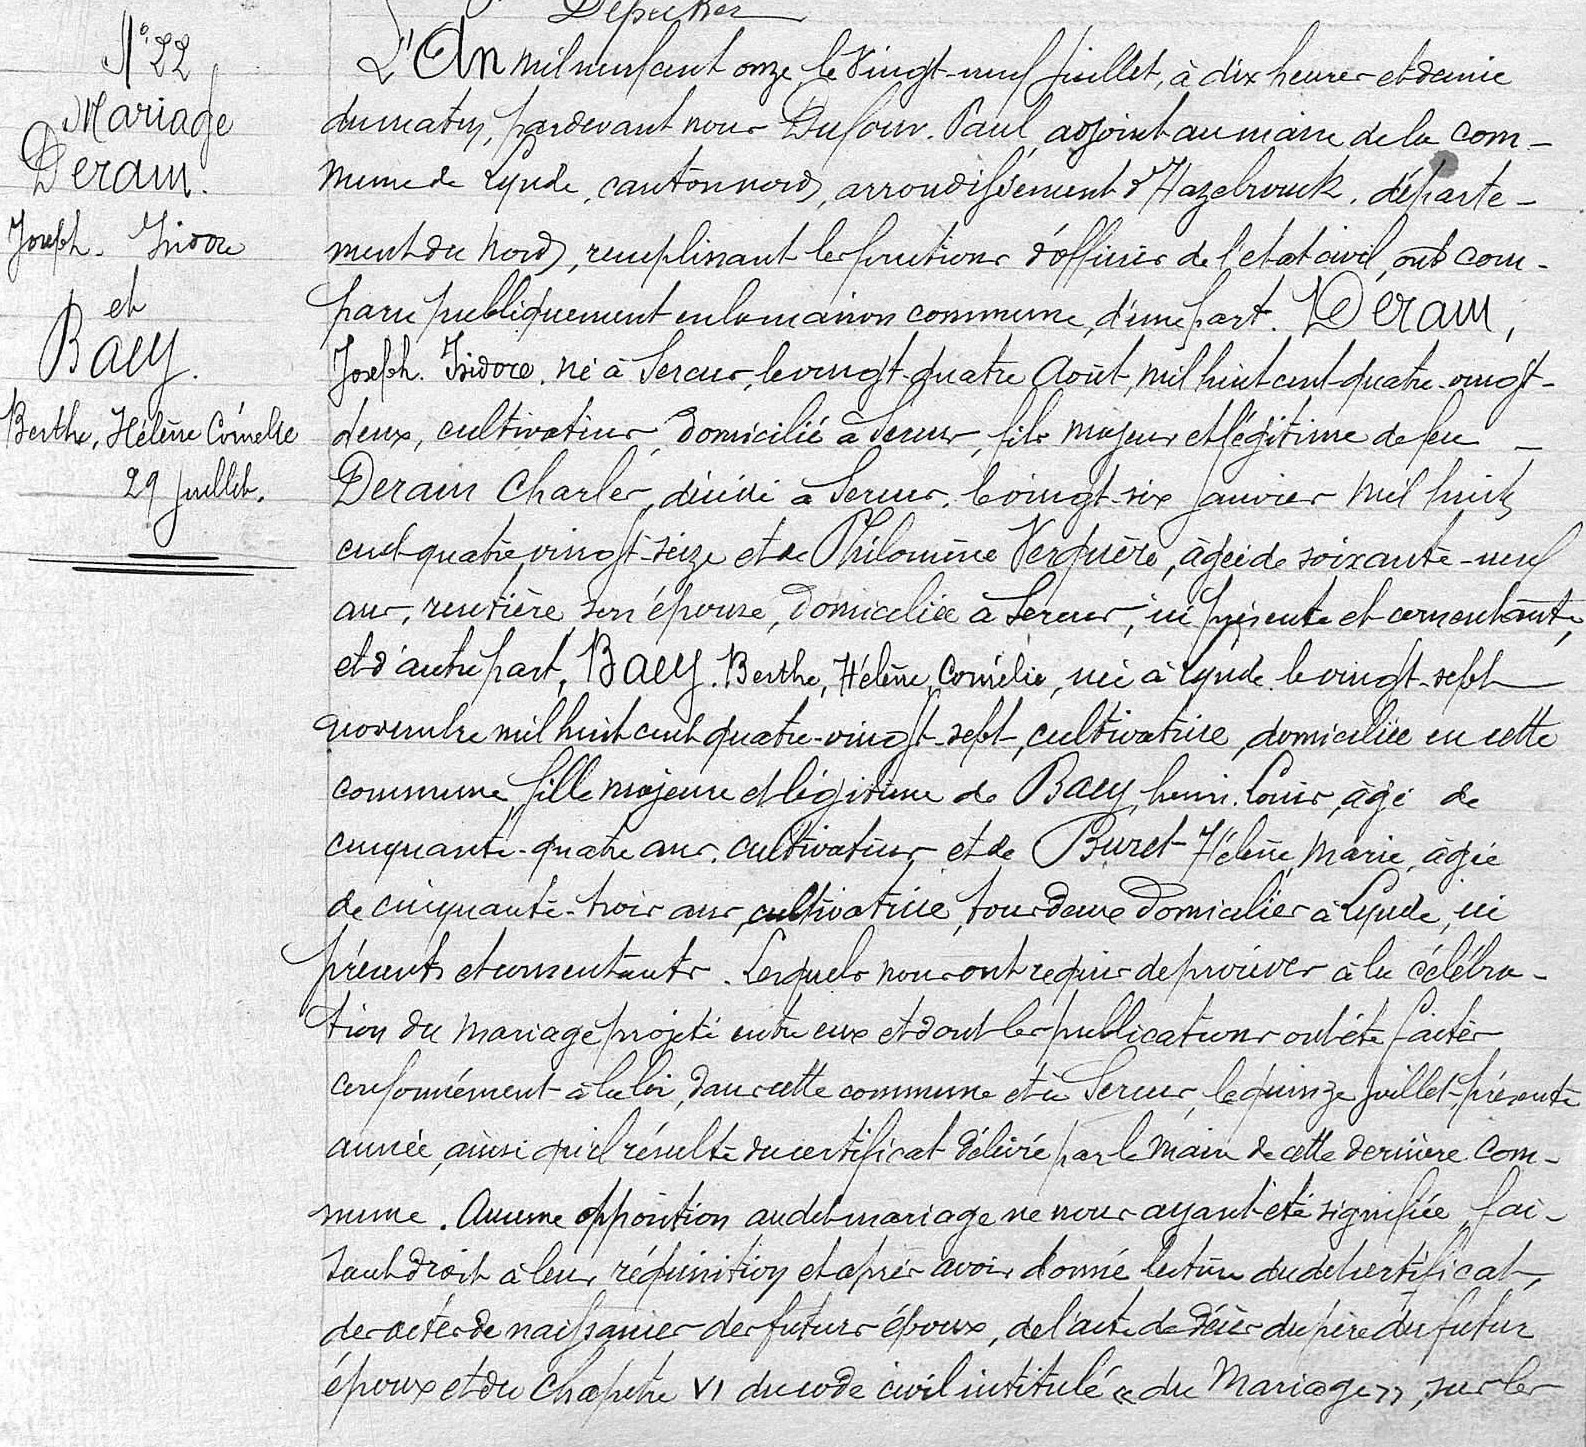 N° 22
Mariage
Deram.
Joseph. Isidore
et
Baey.
Berthe, Hélène Cornélie
29 juillet.
L'An mil neuf cent onze le Vingt-neuf juillet, à dix heures et demie
du matin, pardevant nous Dufour. Paul, adjoint au maire de la com-
mune de Lynde, canton nord, arrondissement d'Hazebrouck, départe-
ment du Nord, remplissant les fonctions d'officier de l'etat civil, ont com-
paru publiquement en la maison commune, d'une part. Deram,
Joseph. Isidore. né à Sercus, le vingt-quatre Août, mil huit cent quatre-vingt-
deux, cultivateur, domicilié à Sercus, fils majeur et légitime de feu
Deram Charles, décédé à Sercus. le vingt-six janvier mil huit
cent quatre vingt-seize et de Philomène Verquère, âgée de soixante-neuf
ans, rentière son épouse, domiciliée à Sercus, ici présente et consentante,
et d'autre part, Baey. Berthe, Hélène, Cornélie, née à Lynde. le vingt-sept
novembre mil huit cent quatre-vingt-sept, cultivatrice, domiciliée en cette
commune, fille majeure et légitime de Baey, henri. Louis, âgé de
cinquante-quatre ans. cultivateur et de Buret Hélène, Marie, âgée
de cinquante-trois ans, cultivatrice, tous deux domiciliés à Lynde, ici
présents et consentants. Lesquels nous ont requis de procéder à la célébra-
tion du mariage projeté entre eux et dont les publications ont été faites
conformément à la loi, dans cette commune et à Sercus, le quinze juillet, présente
année, ainsi qu'il résulte du certificat délivré par le Maire de cette dernière com-
mune. Aucune opposition audit mariage ne nous ayant été signifiée, fai-
sant droit à leur réquisition et après avoir donné lecture dudit certificat,
des actes de naissances des futurs époux, de l'acte de décès du père du futur
époux et du Chapitre VI du code civil intitulé « du Mariage », sur les